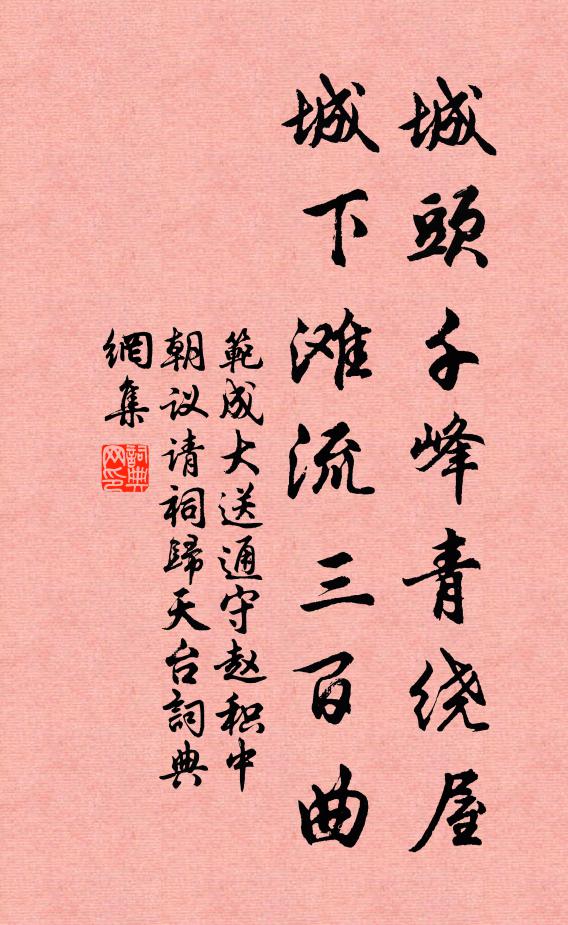 城頭千峰青绕屋
城下滩流三百曲
範成大送通守赵积中
朝议请祠歸天台詞典
網集
詞典网印